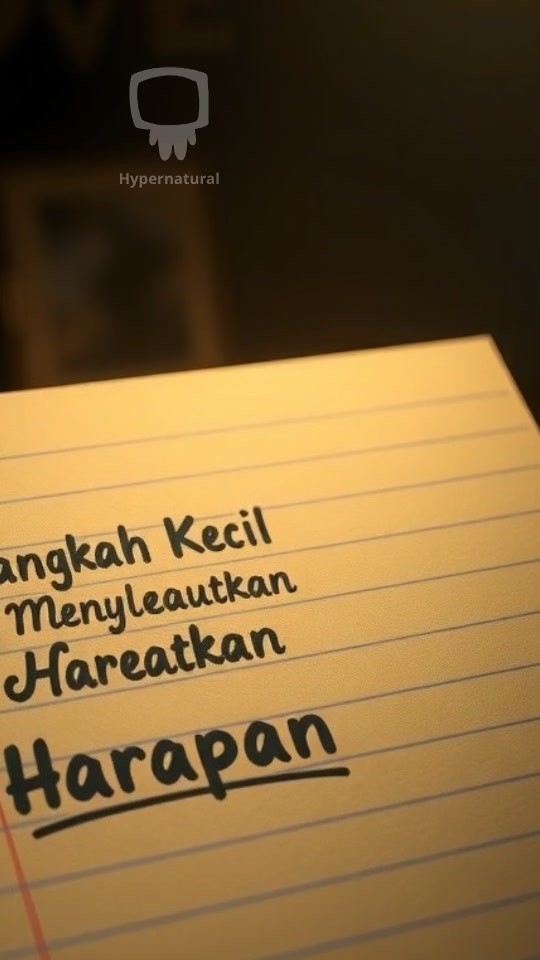 Hypernatural
angkah Kecil
Menyleautkan
Hareatkan
Harapan